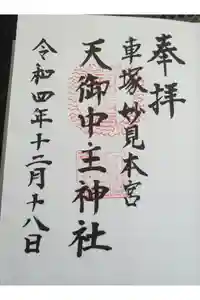 奉拝
車塚妙見本宮
天御中主神社
令和四年十二月十八日